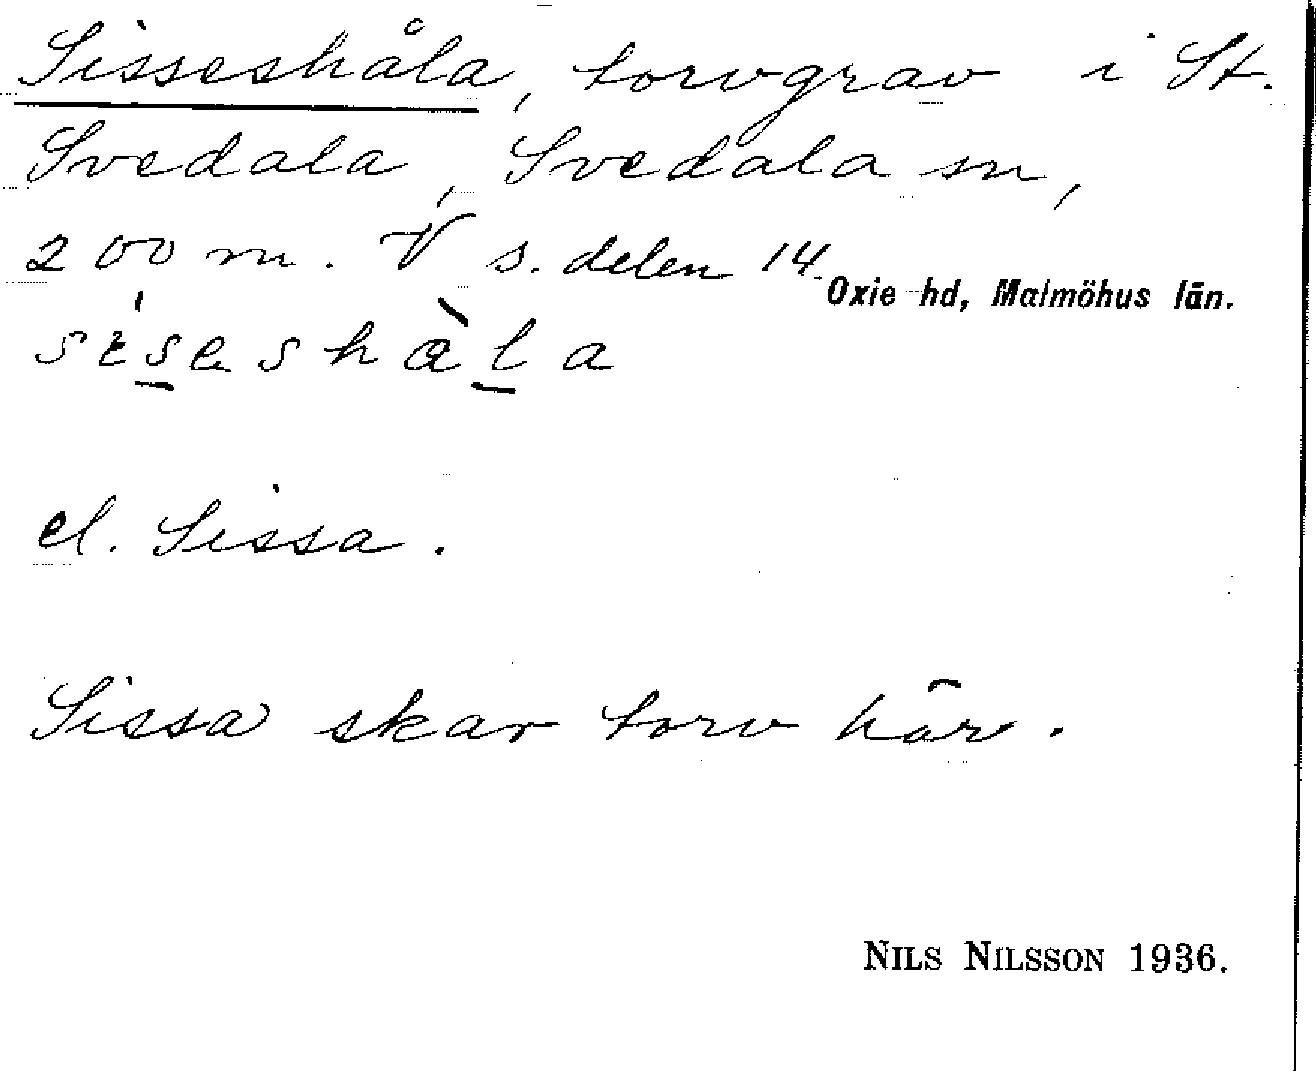 Sisseshåla, torvgrav i St.
Svedala, Svedala sn,
200 m. V s. delen 14
Oxie hd, Malmöhus län.
el. Sissa.
Sissa skar torv här.
NILS NILSSON 1936.